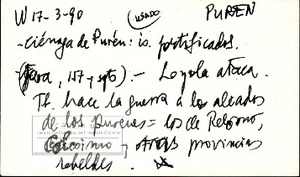 W 17-3-90 USADO PUREN
- ciénaga de Purén: is. fortificados.
157 y sgts). - Loyola ataca.
Tb. hace la guerra a los alzados
de los purenes = los de
y otras provincias
rebeldes.